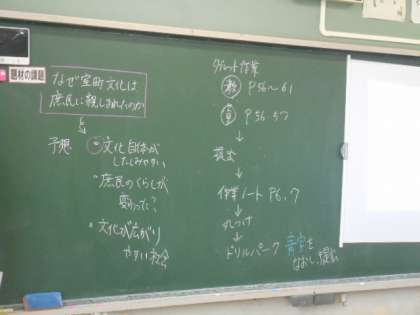 題材の課題
なぜ室町文化は
庶民に親しまれたのか
予想
文化自体が
したしみやすい
・庶民のくらしが
変わった?
・文化が広がり
やすい社会
タブレット作業
教 P56〜61
P56.57
↓
提出
↓
作業ノート P6.7
↓
丸つけ
↓
ドリルパーク
青字を
なおし、提出